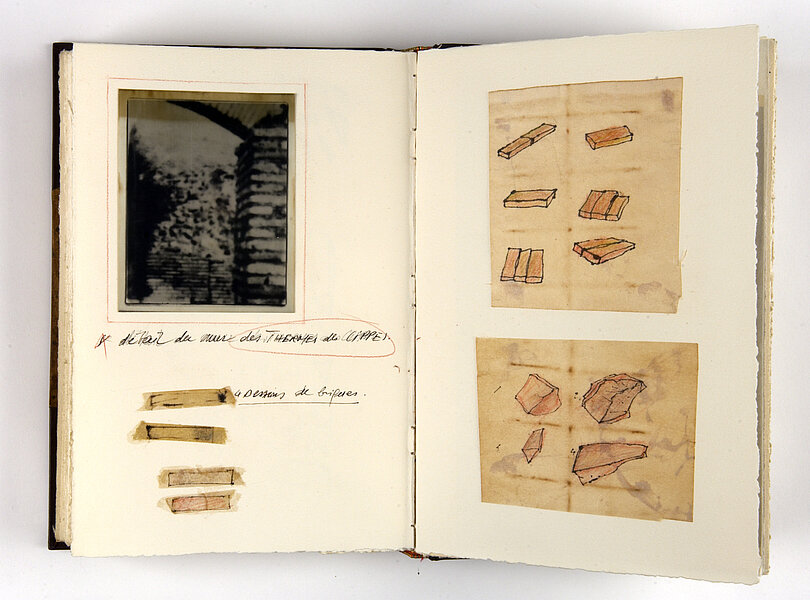 détail du mur des THERMES de CIPPEI.
4 Dessins de briques.